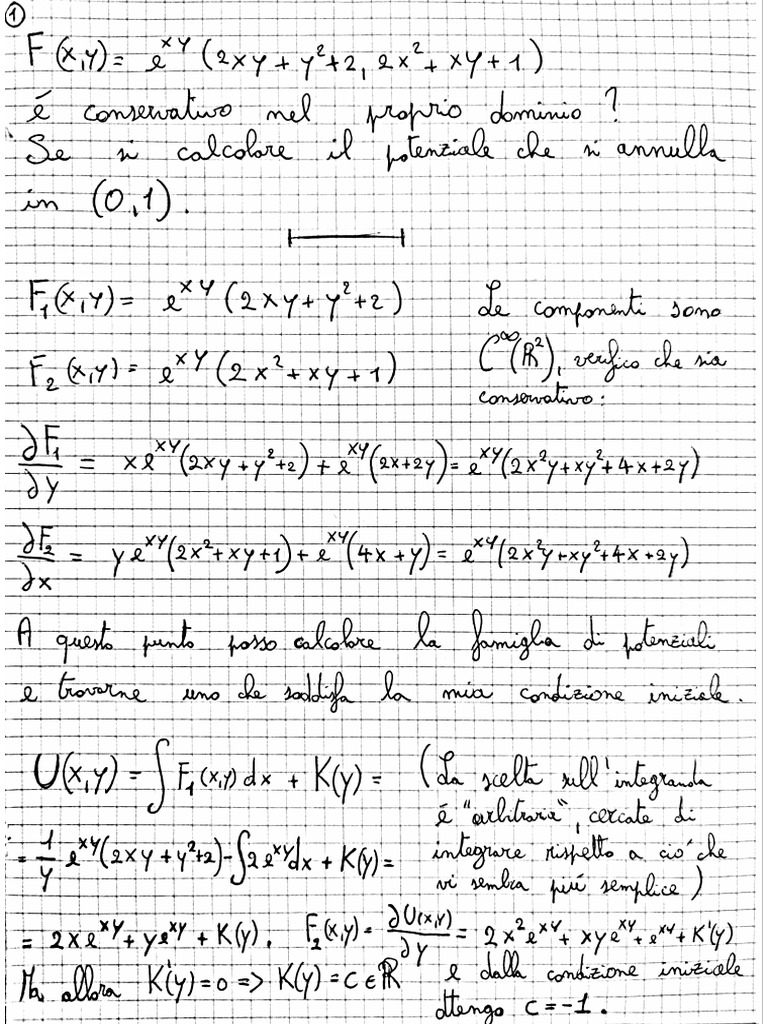 ①
F(x,y) = e^{xy} (2xy + y² + 2, 2x² + xy + 1)
é conservativo nel proprio dominio?
Se si calcolare il potenziale che si annulla
in (0,1).
F₁(x,y) = e^{xy} (2xy + y² + 2) Le componenti sono
F₂(x,y) = e^{xy} (2x² + xy + 1) C^∞(ℝ²), verifico che sia
conservativo:
∂F₁/∂y = xe^{xy}(2xy + y² + 2) + e^{xy}(2x + 2y) = e^{xy}(2x²y + xy² + 4x + 2y)
∂F₂/∂x = ye^{xy}(2x² + xy + 1) + e^{xy}(4x + y) = e^{xy}(2x²y + xy² + 4x + 2y)
A questo punto posso calcolare la famiglia di potenziali
e trovarne uno che soddisfa la mia condizione iniziale.
U(x,y) = ∫F₁(x,y) dx + K(y) = (La scelta sull'integranda
é "arbitraria", cercate di
= 1/y e^{xy}(2xy + y² + 2) - ∫2e^{xy}dx + K(y) = integrare rispetto a ció che
vi sembra piú semplice)
= 2xe^{xy} + ye^{xy} + K(y). F₂(x,y) = ∂U(x,y)/∂y = 2x²e^{xy} + xye^{xy} + e^{xy} + K'(y)
Ma allora K'(y) = 0 => K(y) = c ∈ ℝ e dalla condizione iniziale
ottengo c = -1.